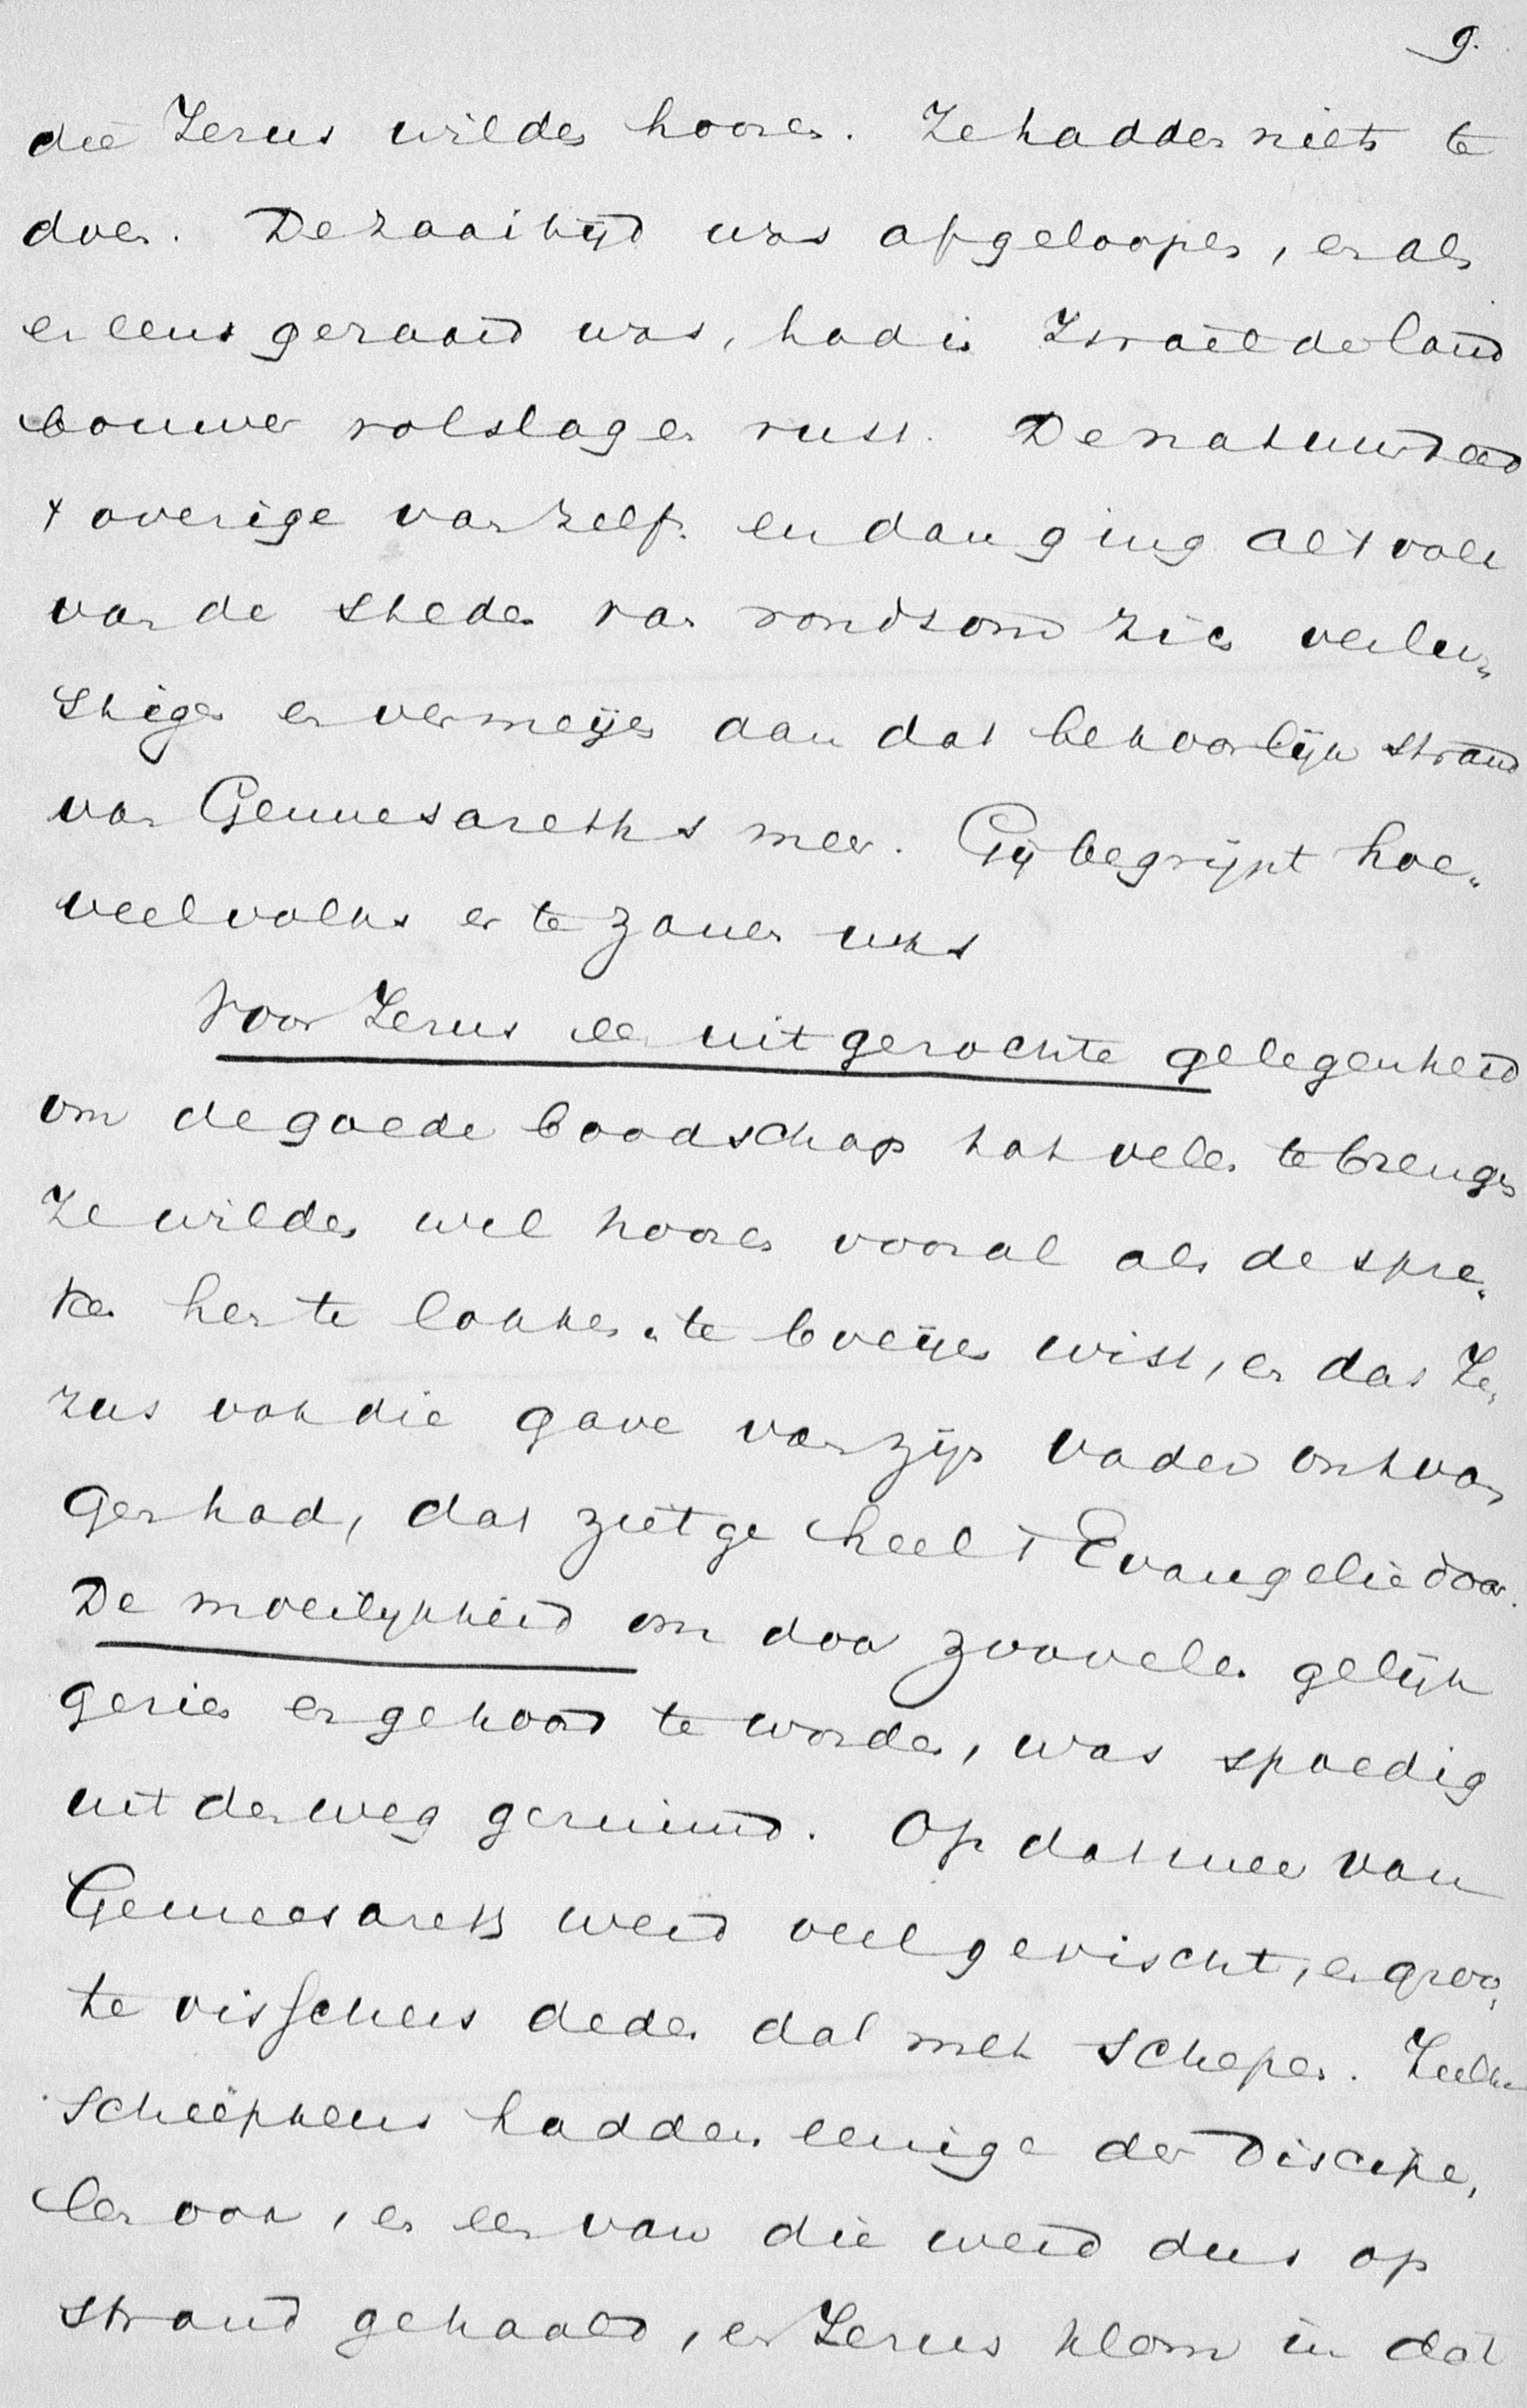 9.
die Jezus wilden hooren. Ze hadden niets te
doen. De zaaitijd was afgeloopen, en als
er eens gezaaid was, had in Israël de land
bouwer volslagen rust. De natuur deed
't overige van zelf. en dan ging al 't volk
van de steden van rondsom zich verlus„
stigen en vermeijen aan dat bekoorlijk strand
van Gennesareths meer. Gij begrijpt hoe„
veel volks er te zamen was
Voor Jezus een uitgezochte gelegenheid
om de goede boodschap tot velen te brengen
Ze wilden wel hooren vooral als de spre„
ker hen te lokken & te boeijen wist, en dat Je„
zus ook die gave van zijn vader ontvan
gen had, dat ziet ge heel 't Evangelie door.
De moeilijkheid om door zoovelen gelijk
gezien en gehoord te worden, was spoedig
uit den weg geruimd. Op dat meer van
Gennesareth werd veel gevischt, en groo„
te visschers deden dat met schepen. Zulke
scheepkens hadden eenige der Discipe„
len ook, en een van die werd dus op
strand gehaald, en Jezus klom in dat